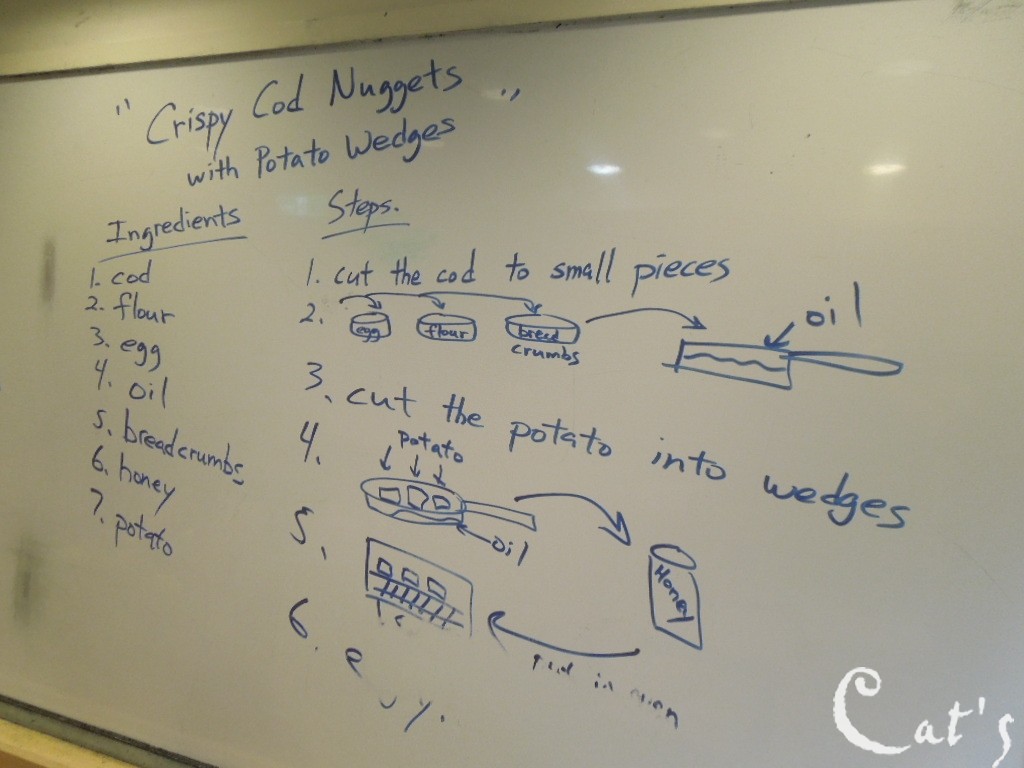 " Crispy Cod Nuggets "
with Potato Wedges
Ingredients
1. cod
2. flour
3. egg
4. oil
5. breadcrumbs
6. honey
7. potato
Steps.
1. cut the cod to small pieces
2. egg flour bread
crumbs
oil
3. cut the potato into wedges
4. potato
oil
Honey
5.
in
6.
Cat's